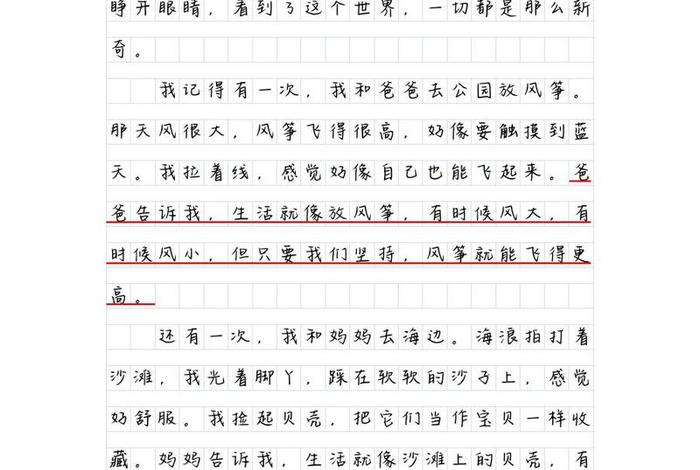 睁开眼睛，看到了这个世界，一切都是那么新
奇。
我记得有一次，我和爸爸去公园放风筝。
那天风很大，风筝飞得很高，好像要触摸到蓝
天。我拉着线，感觉好像自己也能飞起来。爸
爸告诉我，生活就像放风筝，有时候风大，有
时候风小，但只要我们坚持，风筝就能飞得更
高。
还有一次，我和妈妈去海边。海浪拍打着
沙滩，我光着脚丫，踩在软软的沙子上，感觉
好舒服。我捡起贝壳，把它们当作宝贝一样收
藏。妈妈告诉我，生活就像沙滩上的贝壳，有